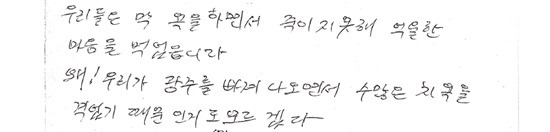 우리들은 막 욕을하면서 죽이지못해 억울한
마음을 먹었읍니다
왜! 우리가 광주를 빠져 나오면서 수많은 치욕을
격었기 때문 인지도모르 겠다